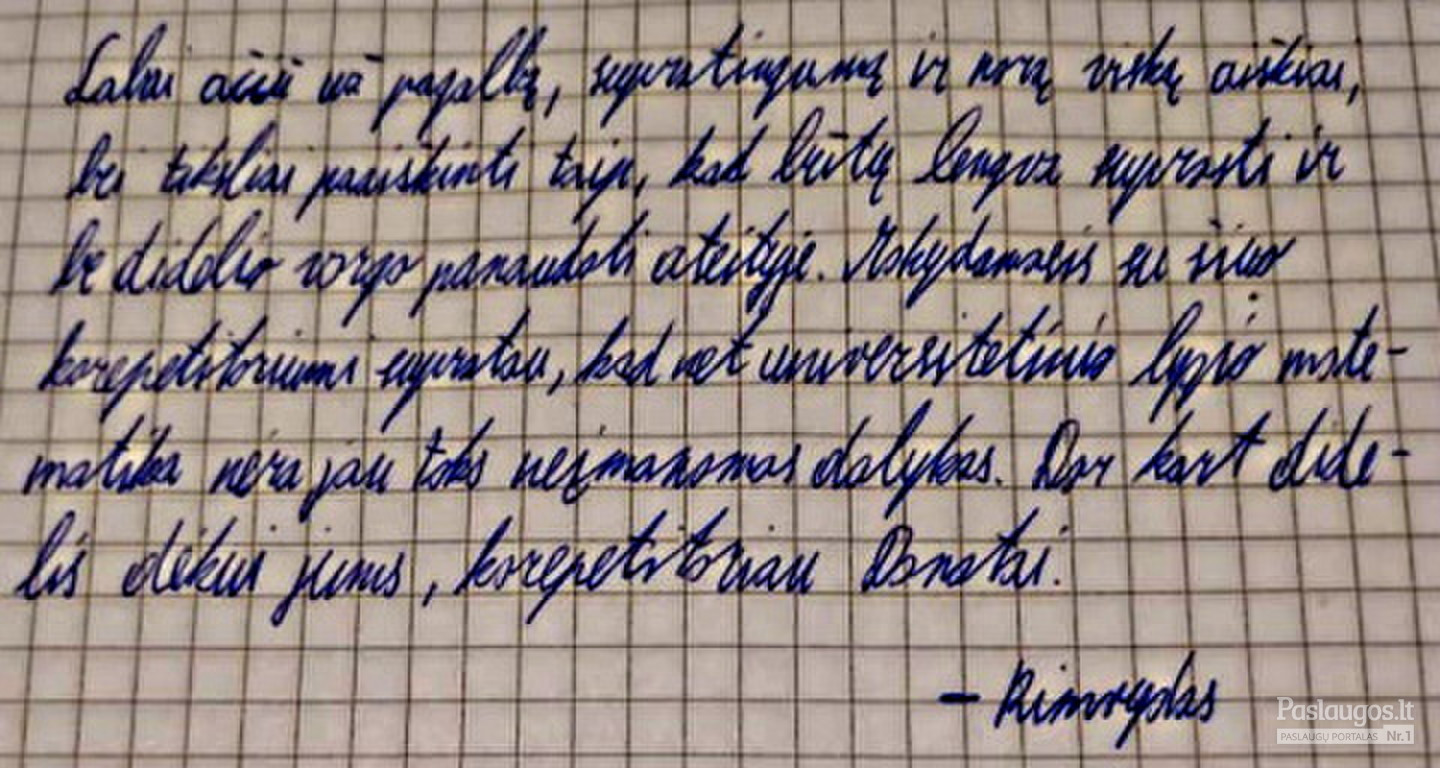 Labai ačiū už pagalbą, supratingumą ir norą viską aiškiai,
bei tiksliai paaiškinti taip, kad būtų lengva suprasti ir
be didelio vargo panaudoti ateityje. su šiuo
korepetitoriumi supratau, kad net universitetinio lygio mate-
matika nėra jau toks neįmanomas dalykas. Dar kart dide-
lis dėkui jums, korepetitoriau Donatai.
- Rimvydas
Paslaugos.lt
PASLAUGŲ PORTALAS Nr.1